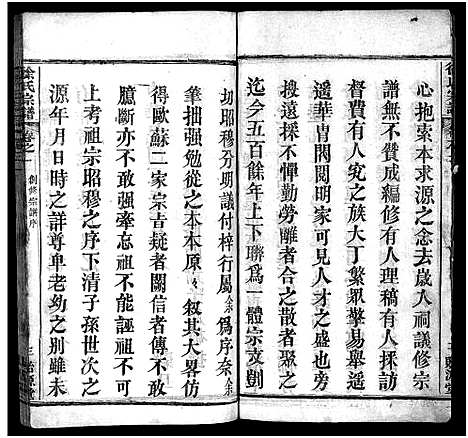 心抱索本求源之念去歲入祠議修宗
譜無不贊成編修有人理稿有人採訪
督費有人究之族大丁繁眾擎易舉遥
遥華胄閥閱明家可見人才之盛也旁
不憚勤勞離者合之散者聚之
迄今五百餘年上下聯為一體宗支劃
切昭穆分明議付梓行屬余為序奈余
筆拙强勉從之本本原々叙其大畧仿
得歐蘇二家宗旨疑者闕信者傳不敢
臆斷亦不敢强牽忘祖不敢誣祖不敢
上考祖宗昭穆之序下清子孫世次之
源年月日時之詳尊卑老幼之别雖未
徐氏宗譜
卷之一
創修宗譜序
三